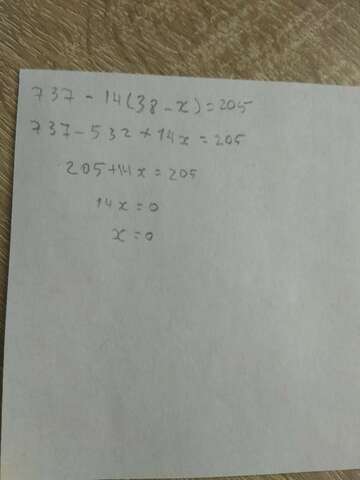 737 - 14(38 - x) = 205
737 - 532 + 14x = 205
205 + 14x = 205
14x = 0
x = 0